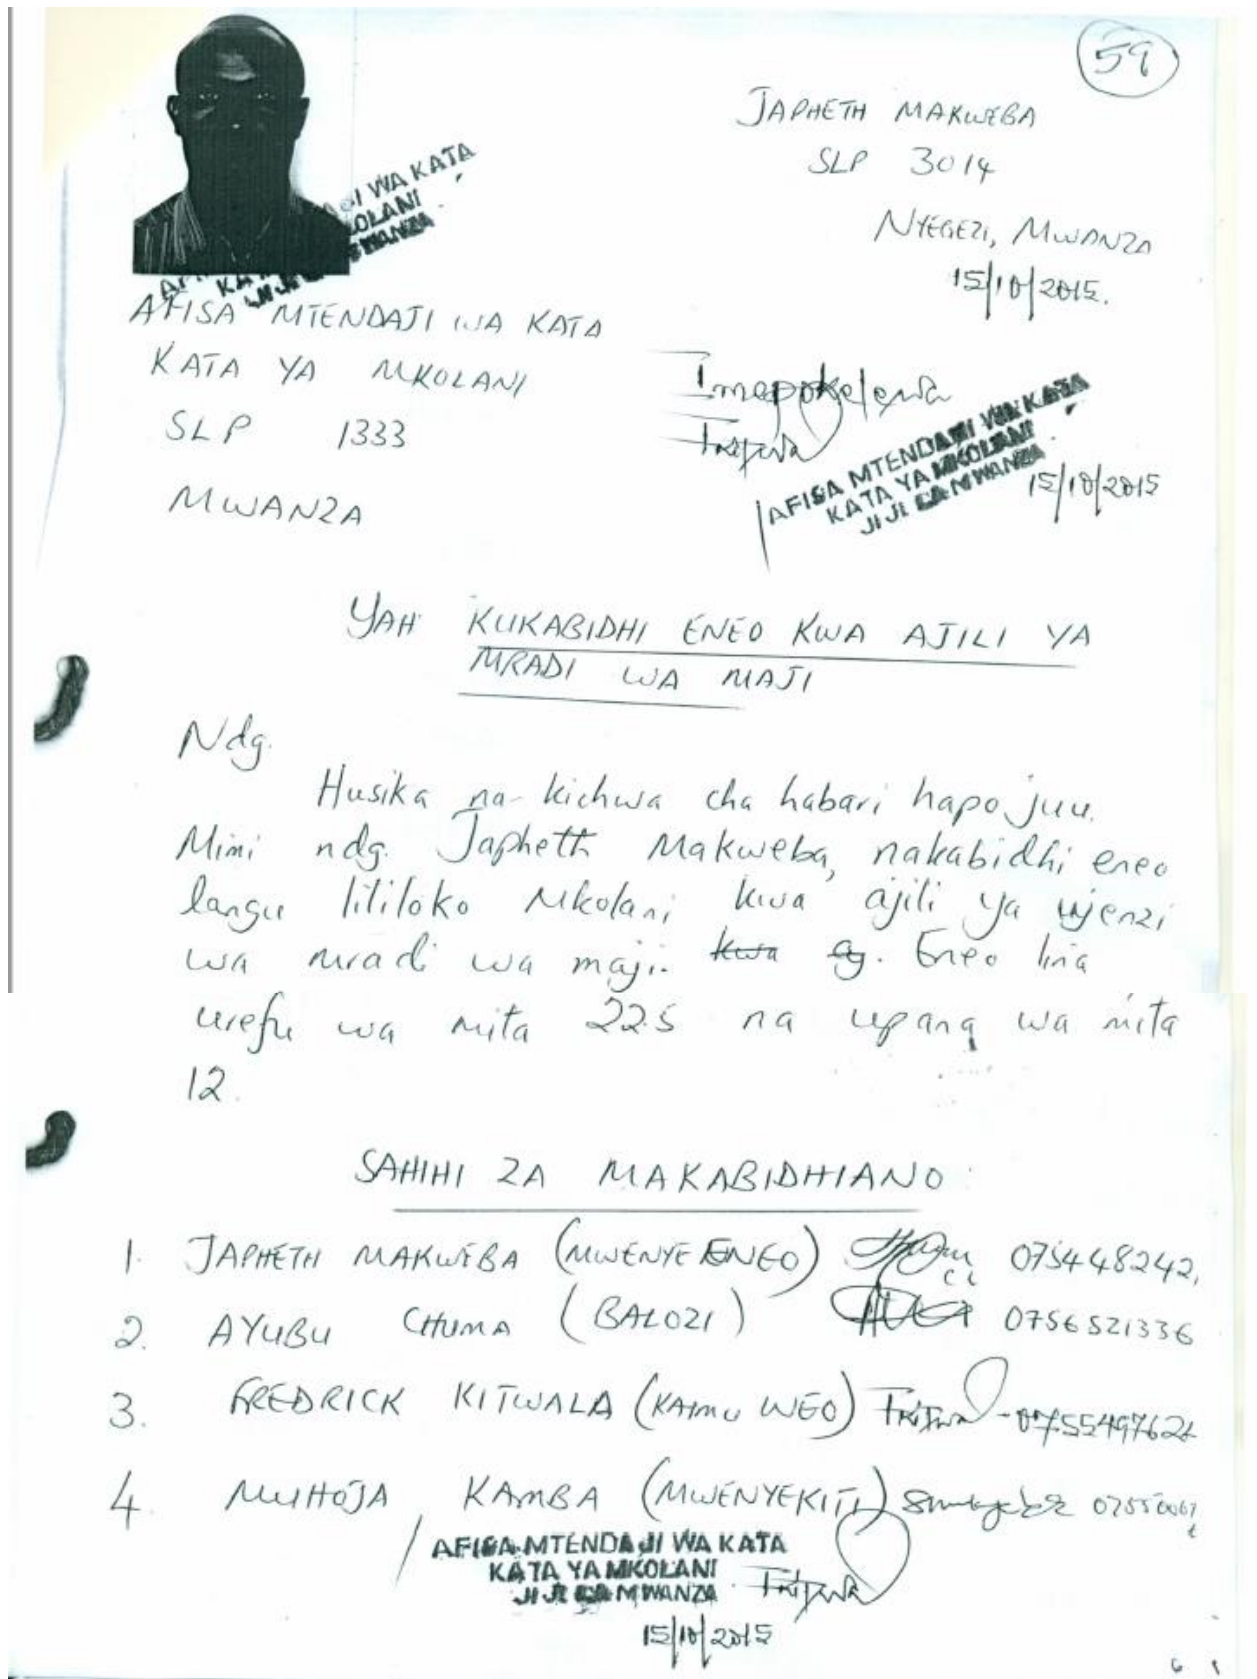 59
JAPHETH MAKWEBA
SLP 3014
NYEGEZI, MWANZA
15/10/2015.
JI WA KATA
KOLANI
MWANZA
AFISA MTENDAJI WA KATA
KATA YA MKOLANI
SLP 1333
MWANZA
Imepokelewa
AFISA MTENDAJI WA KATA
KATA YA MKOLANI
JIJI LA MWANZA
15/10/2015
YAH KUKABIDHI ENEO KWA AJILI YA
MRADI WA MAJI
Ndg.
Husika na kichwa cha habari hapo juu.
Mimi ndg. Japheth Makweba, nakabidhi eneo
langu lililoko Mkolani kwa ajili ya ujenzi
wa mradi wa maji. kwa Eneo lina
urefu wa mita 22.5 na upana wa mita
12.
SAHIHI ZA MAKABIDHIANO:
1. JAPHETH MAKWEBA (MWENYE ENEO) 0754448242
2. AYUBU CHUMA (BALOZI) 0756521336
3. FREDRICK KITWALA (KAIMU WEO)
4. MUHOJA KAMBA (MWENYEKITI)
AFISA MTENDAJI WA KATA
KATA YA MKOLANI
JIJI LA MWANZA
15/10/2015